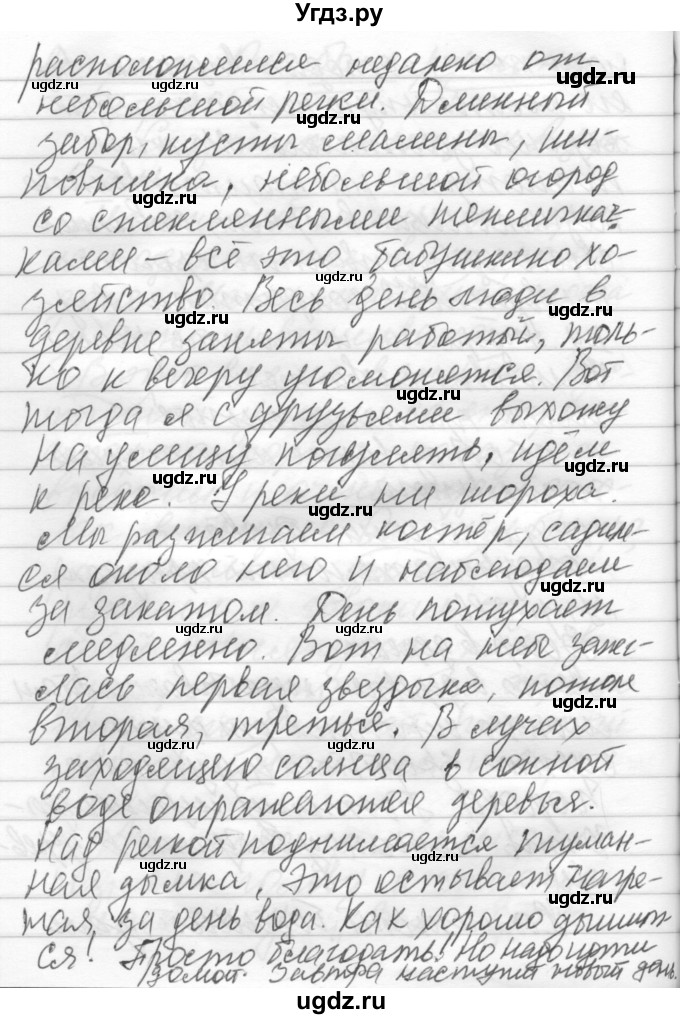 Угдз.ру
расположился недалеко от
небольшой речки. Длинный
забор, кусты малины, ши-
повника, небольшой огород
со стеклянными тепличка-
ками – всё это бабушкино хо-
зяйство. Весь день люди в
деревне заняты работой, толь-
ко к вечеру угомонятся. Вот
тогда я с друзьями выхожу
на улицу погулять, идём
к реке. У реки ни шороха.
Мы разжигаем костёр, садим-
ся около него и наблюдаем
за закатом. День потухает
медленно. Вот на небе зажг-
лась первая звёздочка, потом
вторая, третья. В лучах
заходящего солнца в сонной
воде отражаются деревья.
Над рекой поднимается туман-
ная дымка. Это остывает нагре-
тая за день вода. Как хорошо дышит-
ся! Просто благодать! Но надо идти
домой. Завтра наступит новый день.
ugdz.ru